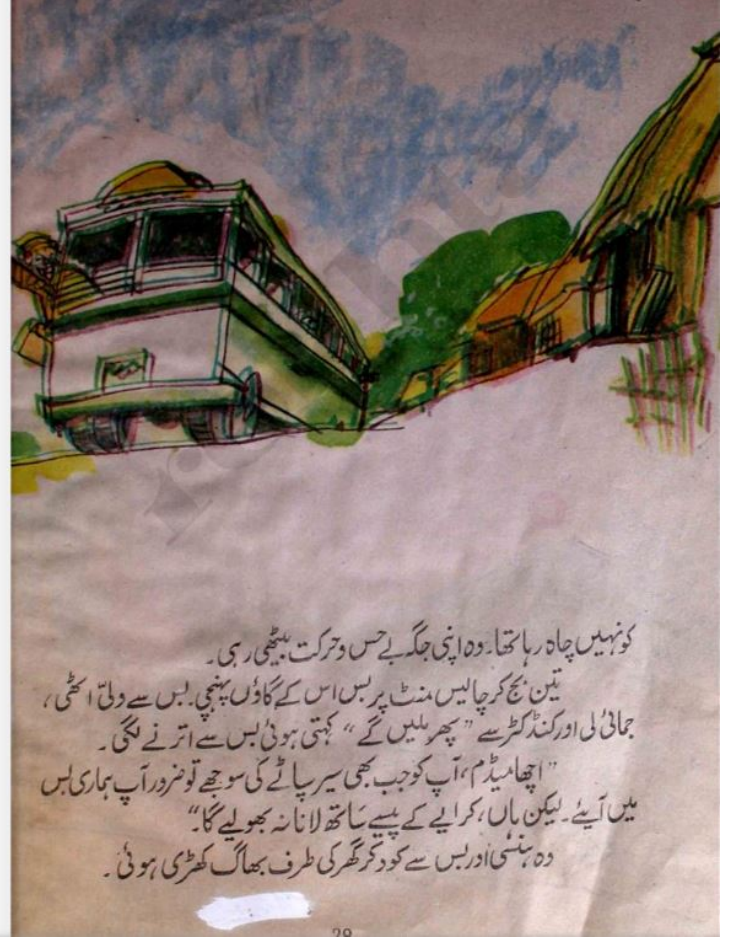 کو نہیں چاہ رہا تھا۔ وہ اپنی جگہ بے حس و حرکت بیٹھی رہی۔
تین بج کر چالیس منٹ پر بس اس کے گاؤں پہنچی۔ بس سے ولیّ اٹھی،
جمائی لی اور کنڈکٹر سے ”پھر ملیں گے“ کہتی ہوئی بس سے اترنے لگی۔
”اچھا میڈم، آپ کو جب بھی سیر سپاٹے کی سوجھے تو ضرور آپ ہماری بس
میں آیئے۔ لیکن ہاں، کرایے کے پیسے ساتھ لانا نہ بھولیے گا۔“
وہ ہنسی اور بس سے کود کر گھر کی طرف بھاگ کھڑی ہوئی۔
29